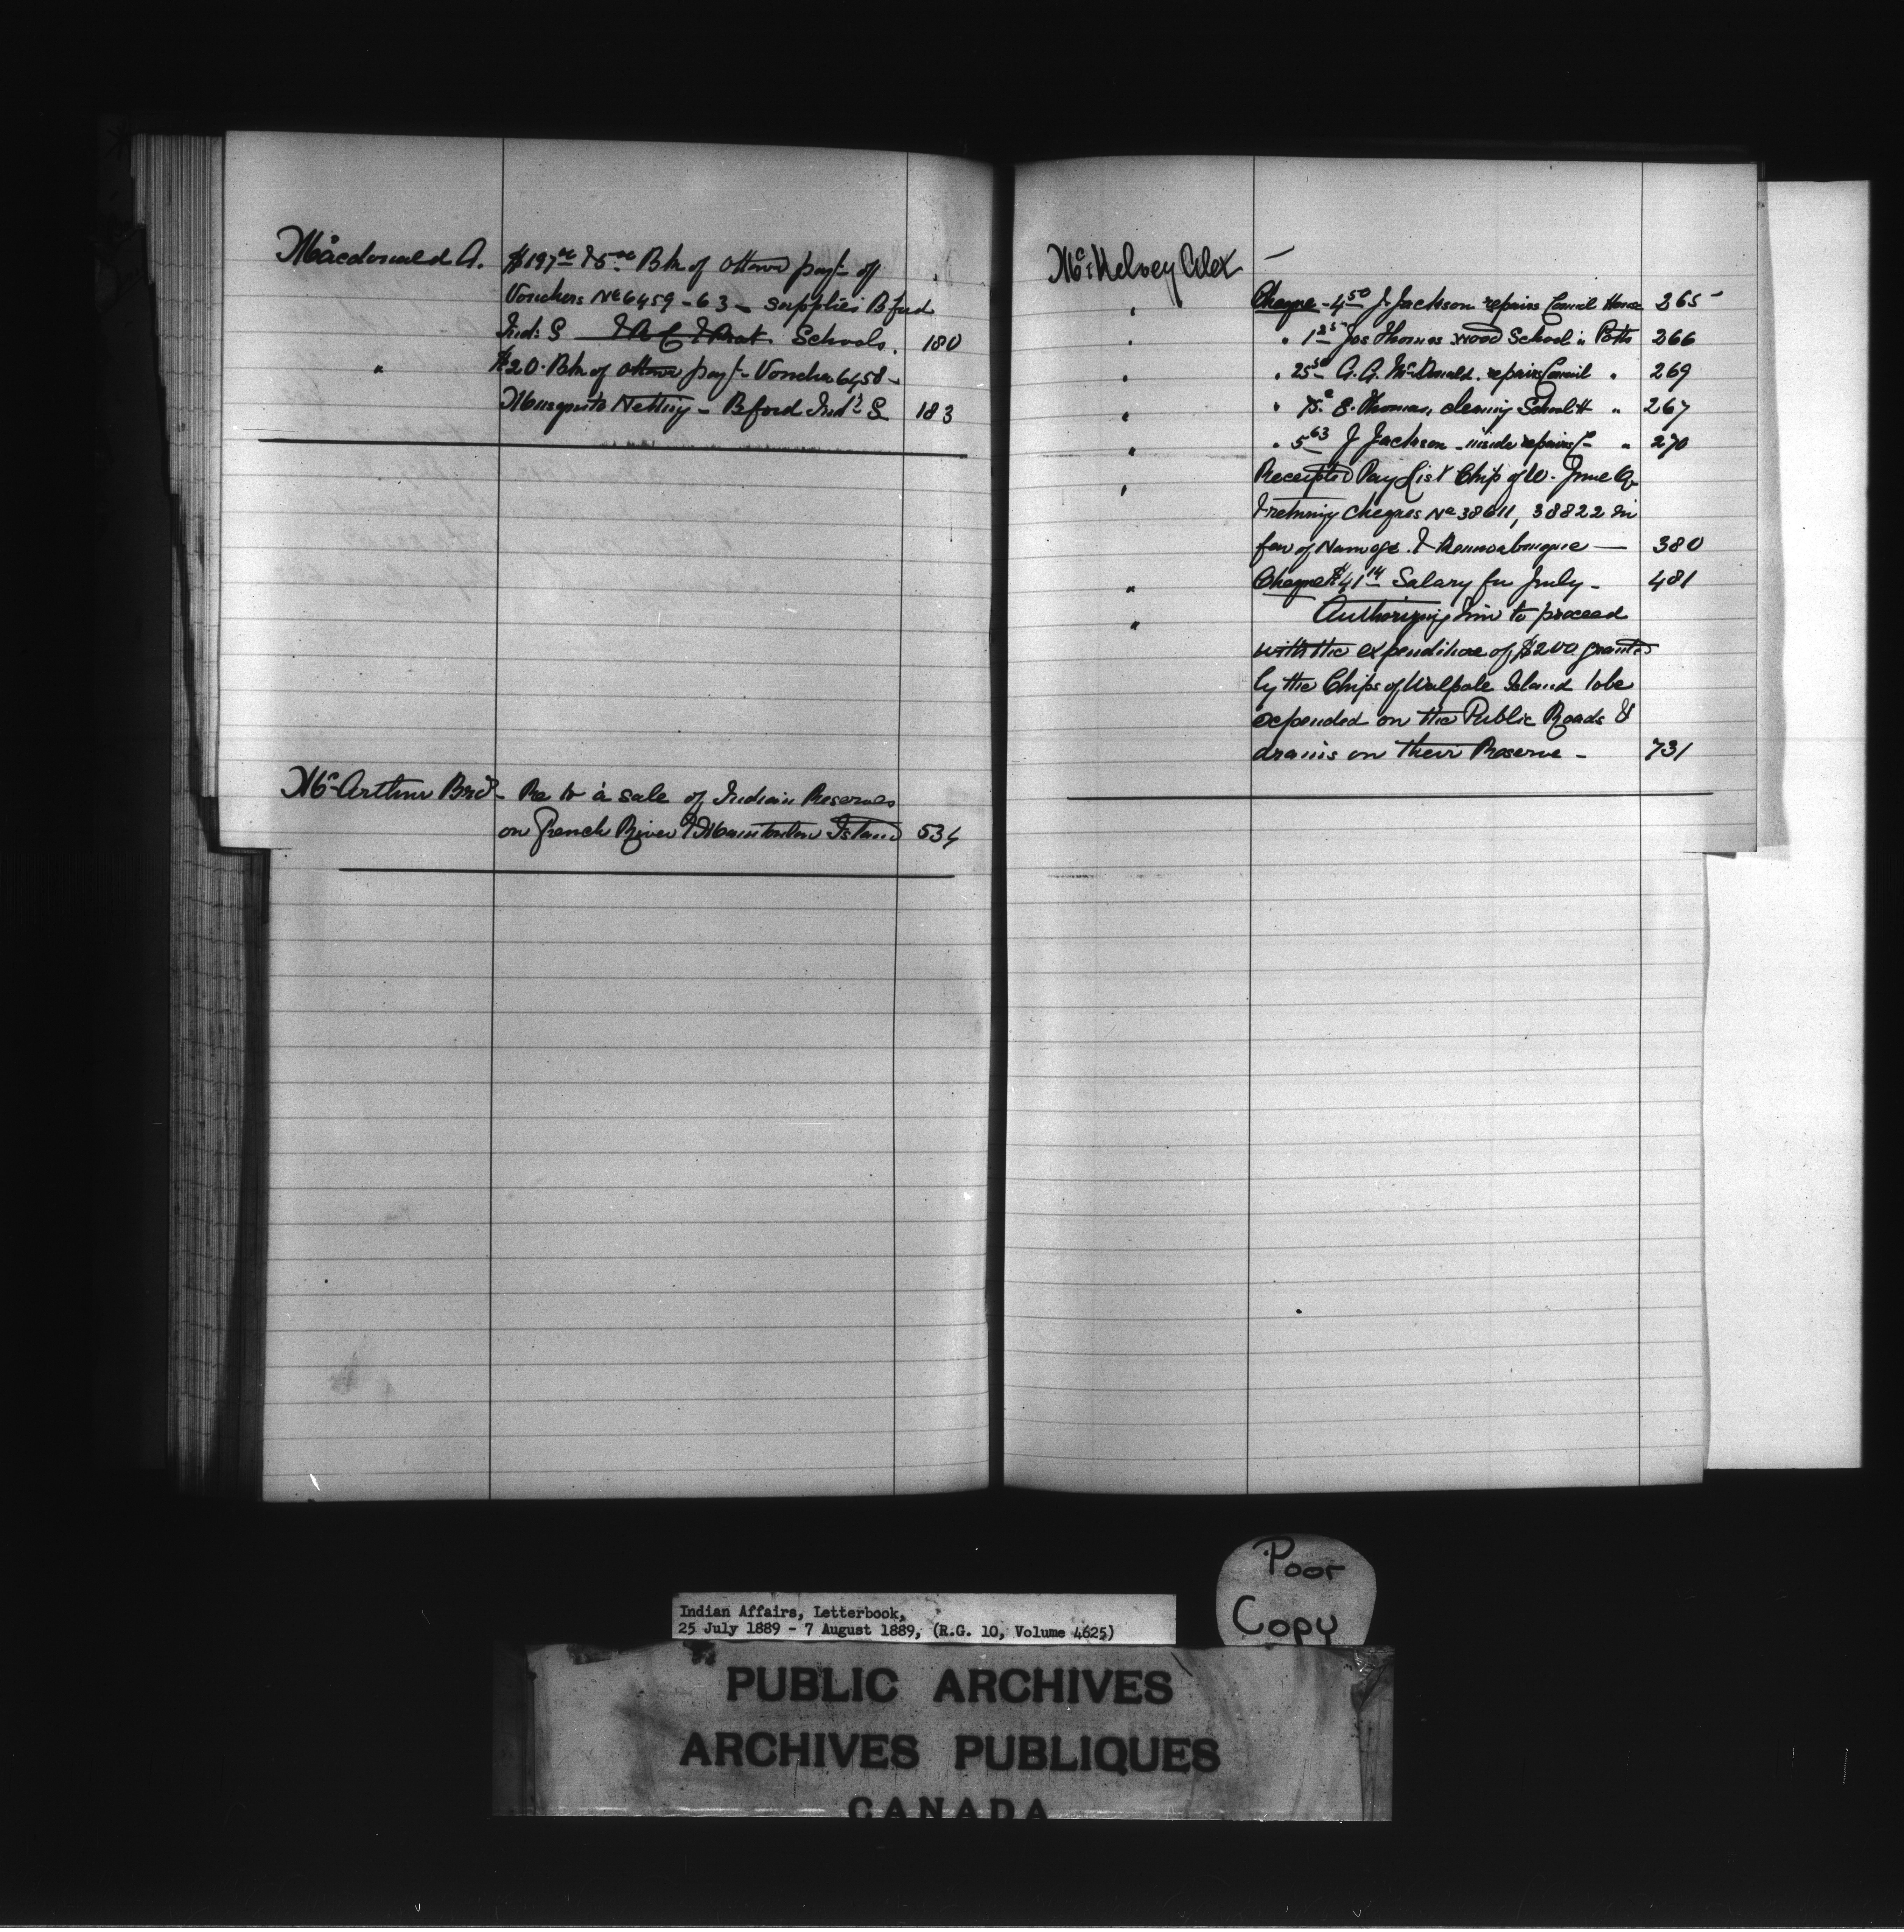 Macdonald A. $197.00 & 5.00 Bk of Ottawa payt of
Vouchers No 6459-63 - supplies B'ford
Ind: S & R C & Prot. Schools. 180
" $20. Bk of Ottawa payt - Voucher 6458 -
Musquito Netting - B'ford Ind: S 183
McArthur Bros - Re to a sale of Indian Reserves
on French River & Manitoulin Island 534
McKelvey Alex -
" Cheque - 4.50 J. Jackson repairs Council House 265
" " 1.25 Jos Thomas wood School " Potts 266
" " 25.50 A. A. McDonald. repairs Council " 269
" " 75c E. Thomas, cleaning School H " 267
" " 5.63 J Jackson - inside repairs C- " 270
" Receipted Pay List Chip of W. June Q.
& returning Cheques No 38611, 38822 in
fav of &
380
" Cheque $41.14 Salary for July - 481
" Authorizing him to proceed
with the expenditure of $200. granted
by the Chips of Walpole Island to be
expended on the Public Roads &
drains on their Reserve - 731
Poor
Copy
Indian Affairs, Letterbook,
25 July 1889 - 7 August 1889, (R.G. 10, Volume 4625)
PUBLIC ARCHIVES
ARCHIVES PUBLIQUES
CANADA